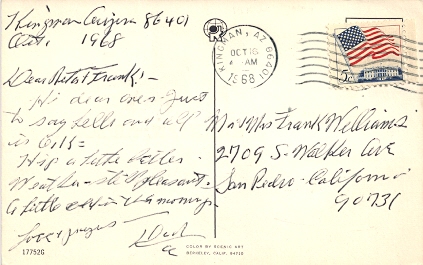 Kingman Arizona 86401
Oct. 1968
Dear Ruth & Frank:-
Hi dear ones Just
to say hello and all
is O.K.=
Hip a little better.
Weather still pleasant.
A little cold in the mornings.
Love & prayers
Dad
KINGMAN, AZ 86401
OCT 16
AM
1968
Mr & Mrs Frank Williams
2709 S. Walker Ave
San Pedro. California
90731
17752G
COLOR BY SCENIC ART
BERKELEY, CALIF. 94710